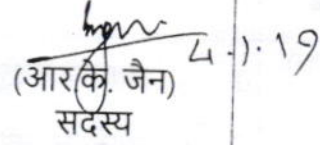 4.1.19
(आर.के. जैन)
सदस्य